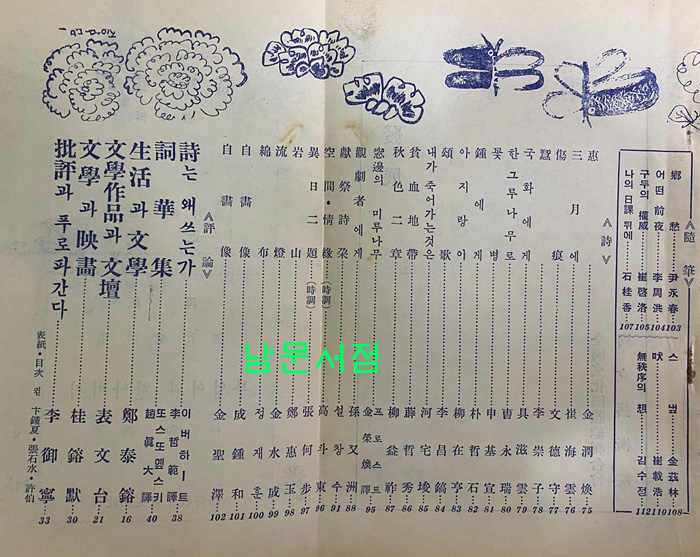 《隨筆》
鄕愁……尹永春…103
어떤 前夜……李周洪…104
구두의 權威……崔啓洛…105
나의 日課 뒤에……石桂香…107
스냎……金玆林…108
吠……崔載浩…110
無秩序의 想……김수정…112
《詩》
惠……金潤煥…75
三月에……崔海雲…76
傷痕……文德守…77
蠶……李崇子…78
국화에게……具滋雲…79
한그루나무로……曺永瑞…80
꽃병……申基宣…81
鍾에게……朴哲石…82
아지랑이……柳在亨…83
頌歌……李昌鎬…84
내가 죽어가는것은……河宅埈…85
貧血地帶……薛哲秀…86
秋色二章……柳益祚…87
窓邊의 미루나무……프로스트 金榮煥譯…95
觀劇者에게……孫又洲…88
獻祭詩朶……설창수…91
空間・情緣(時調)……高斗東…96
異日二題(時調)……張何步…97
岩山……鄭惠玉…98
流燈……金水成…99
綿布……정재훈…100
自畵像……成鍾和…101
自畵像……金聖澤…102
《評論》
詩는 왜쓰는가……이버하ー트 李哲範譯…38
詞華集……또스또옙스키 趙眞大譯…40
生活과 文學……鄭泰鎔…16
文學作品과 文壇……表文台…21
文學과 映畵……桂鎔默…30
批評과 푸로파간다……李御寧…33
表紙・目次 컽 卞鍾夏・張石水・許伯
남문서점